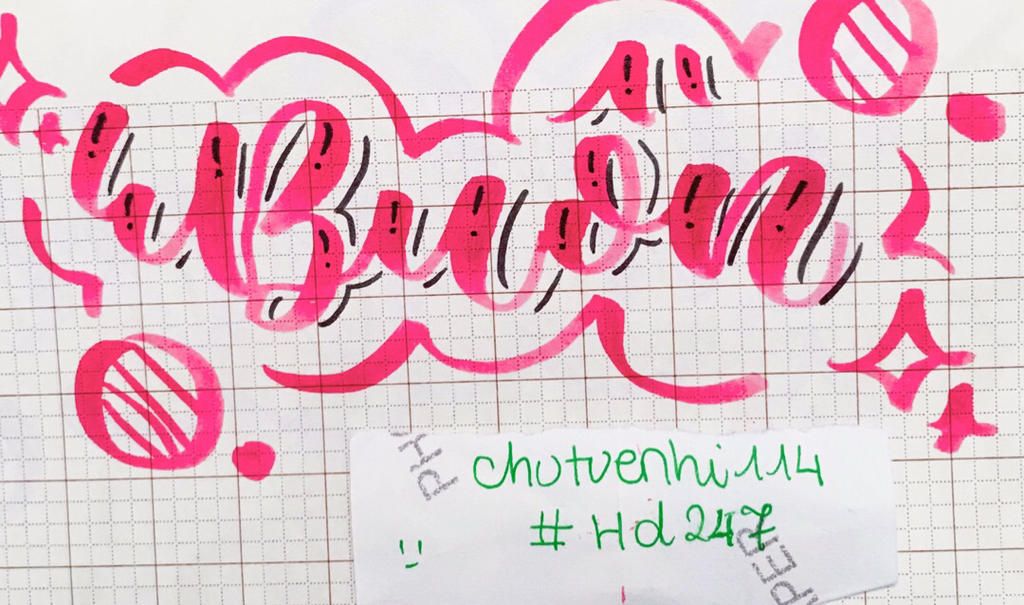 Buồn
PH
chutuenhi114
# Hd 247
PER